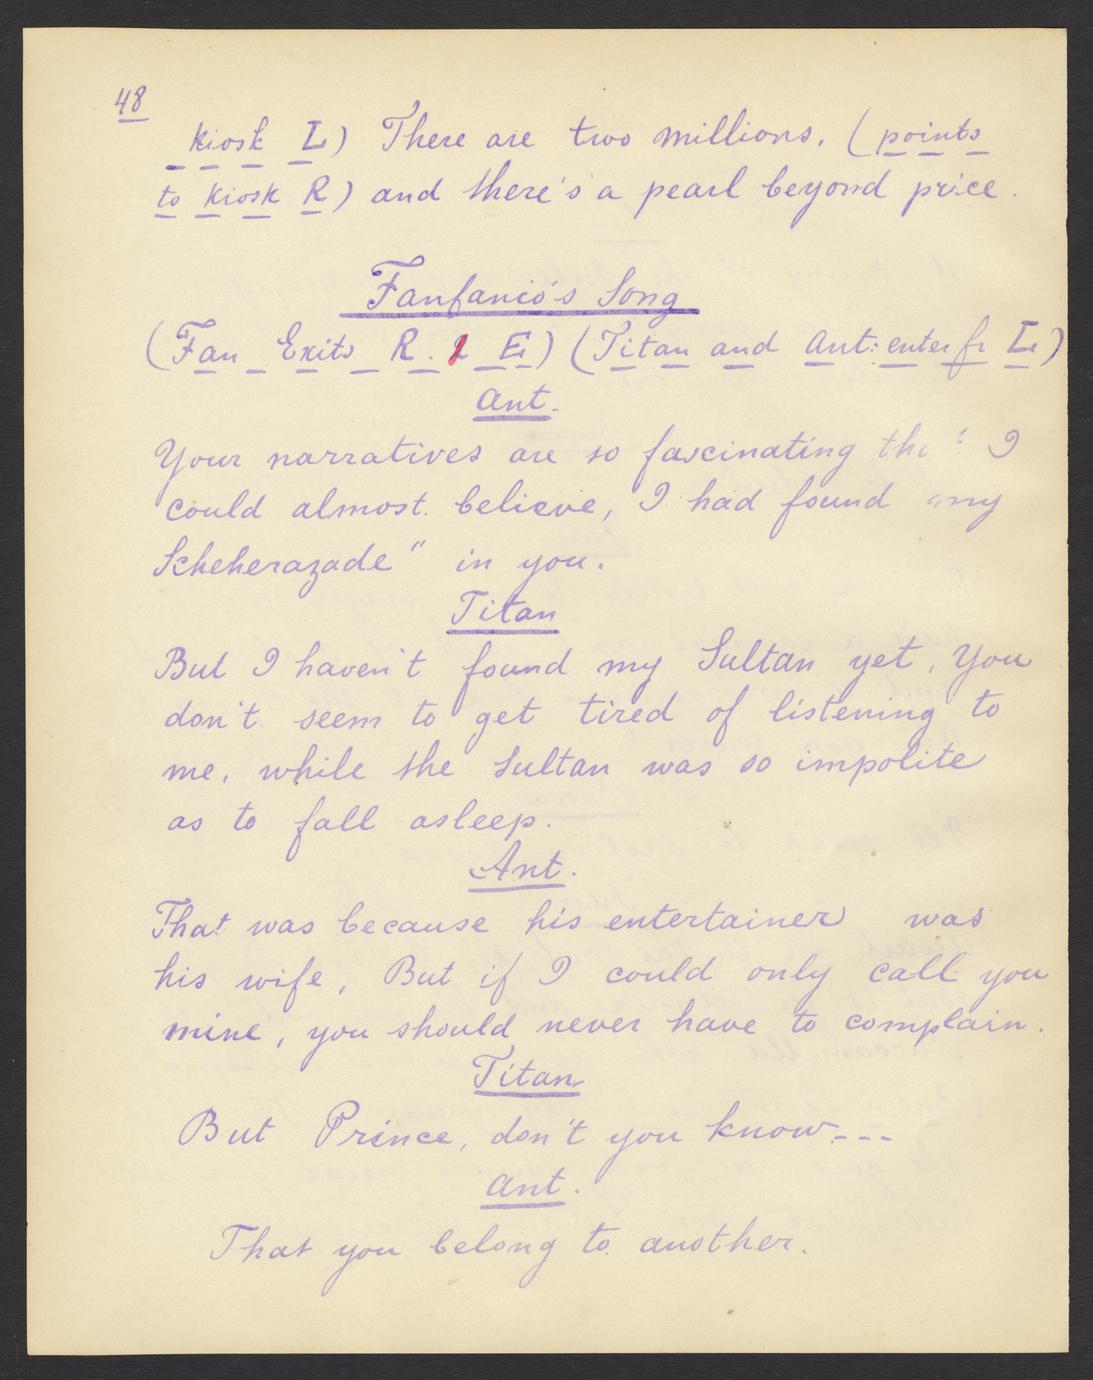 48
kiosk L) There are two millions. (points
to kiosk R) and there's a pearl beyond price.
Fanfanio's Song
(Fan Exits R. 2 E) (Titan and Ant: enter fr L)
Ant.
Your narratives are so fascinating that I
could almost believe, I had found "my
Scheherazade" in you.
Titan
But I haven't found my Sultan yet. You
don't seem to get tired of listening to
me, while the Sultan was so impolite
as to fall asleep.
Ant.
That was because his entertainer was
his wife, But if I could only call you
mine, you should never have to complain.
Titan
But Prince, don't you know---
Ant.
That you belong to another.